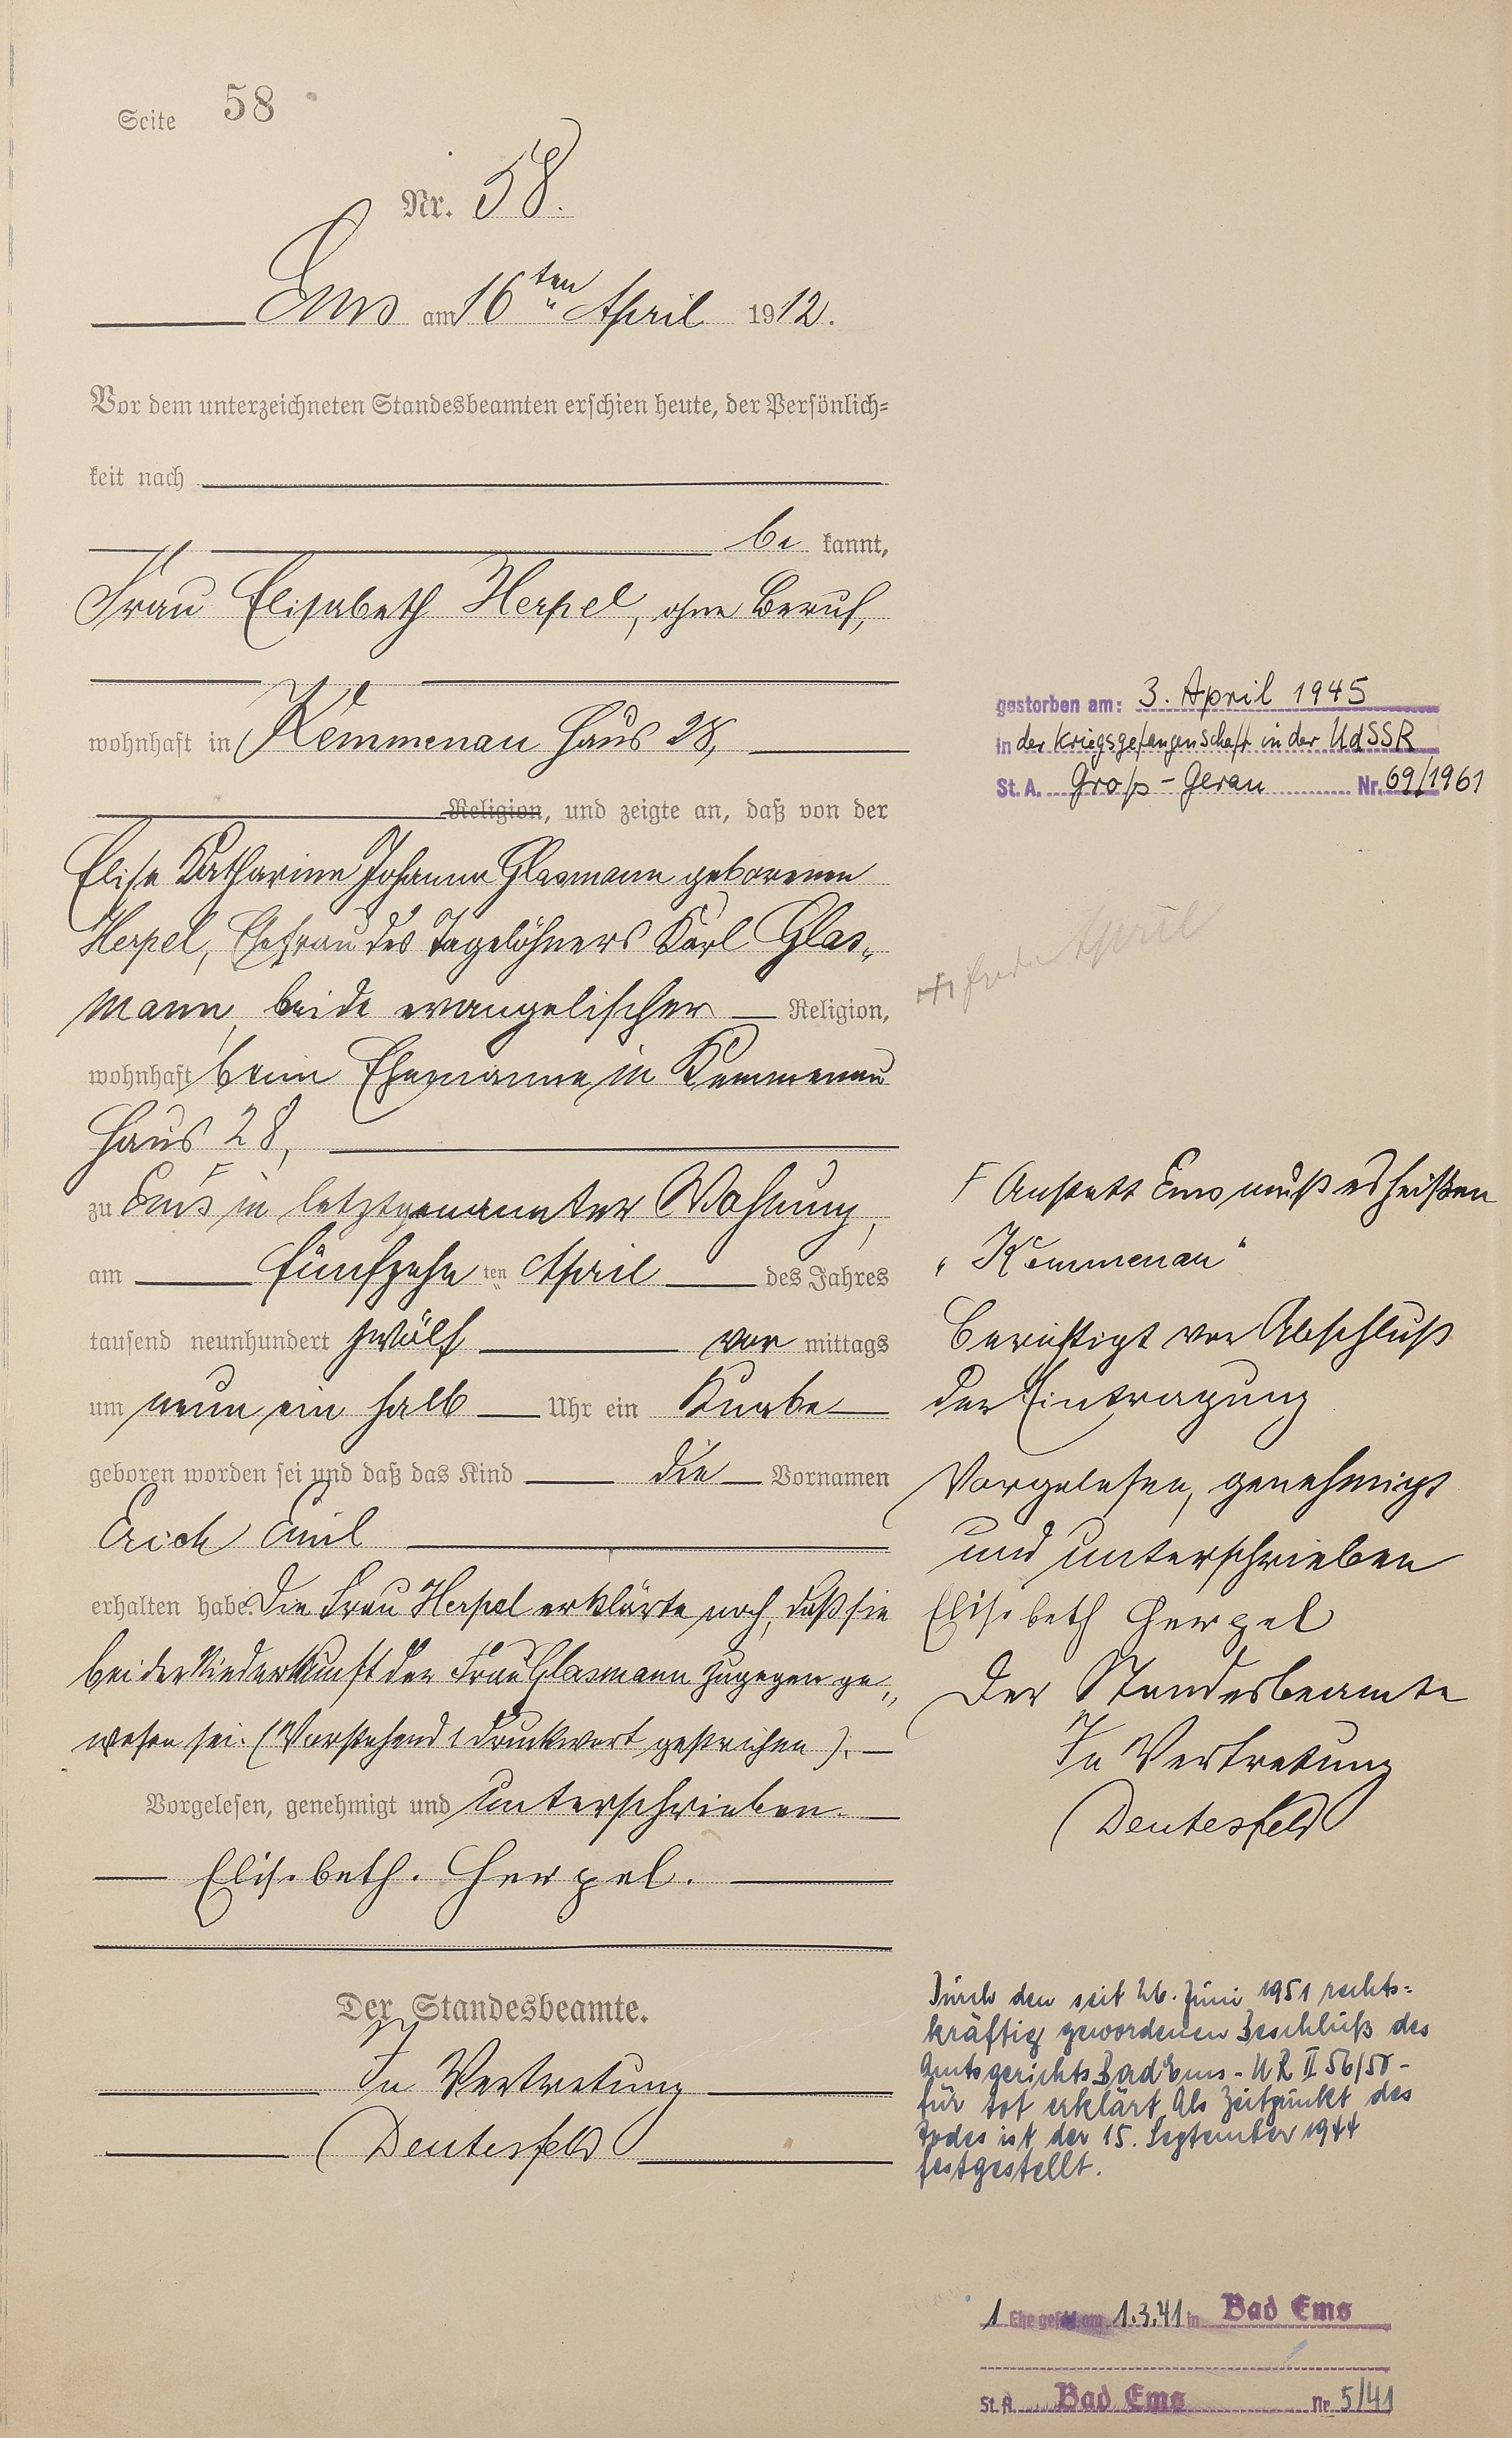 Seite 58
Nr. 58.
Ems am 16ten April 1912.
Vor dem unterzeichneten Standesbeamten erschien heute, der Persönlich-
keit nach
be kannt,
Frau Elisabeth Herpel, ohne Beruf,
wohnhaft in Kemmenau Haus 28,
Religion, und zeigte an, daß von der
Elise Katharina Johanna Glasmann geborenen
Herpel, Ehefrau des Tagelöhners Karl Glas„
mann, beide evangelischer Religion,
wohnhaft beim Ehemanne in Kemmenau
Haus 28,
zu Ems Γ in letztgenannter Wohnung,
am fünfzehn ten April des Jahres
tausend neunhundert zwölf vor mittags
um neun ein halb Uhr ein Knabe
geboren worden sei und daß das Kind die Vornamen
Erich Emil
erhalten habe. Die Frau Herpel erklärte noch, daß sie
bei der Niederkunft der Frau Glasmann zugegen ge„
wesen sei. (Vorstehend 1 Druckwort gestrichen).
Vorgelesen, genehmigt und unterschrieben.
Elisebeth. Herpel.
Der Standesbeamte.
In Vertretung
Deutesfeld
gestorben am: 3. April 1945
in der Kriegsgefangenschaft in der UdSSR
St. A. Groß-Gerau Nr. 69/1961
April
Γ Anstatt Ems muß es heißen
„Kemmenau"
Berichtigt vor Abschluß
der Eintragung
Vorgelesen, genehmigt
und unterschrieben
Elisebeth Herpel
Der Standesbeamte
In Vertretung
Deutesfeld
Durch den seit 26. Juni 1951 rechts=
kräftig gewordenen Beschluß des
Amtsgerichts Bad Ems - UR II 56/50 -
für tot erklärt. Als Zeitpunkt des
Todes ist der 15. September 1944
festgestellt.
1 Ehe geschl. am 1.3.41 in Bad Ems
St. A. Bad Ems Nr. 5/41